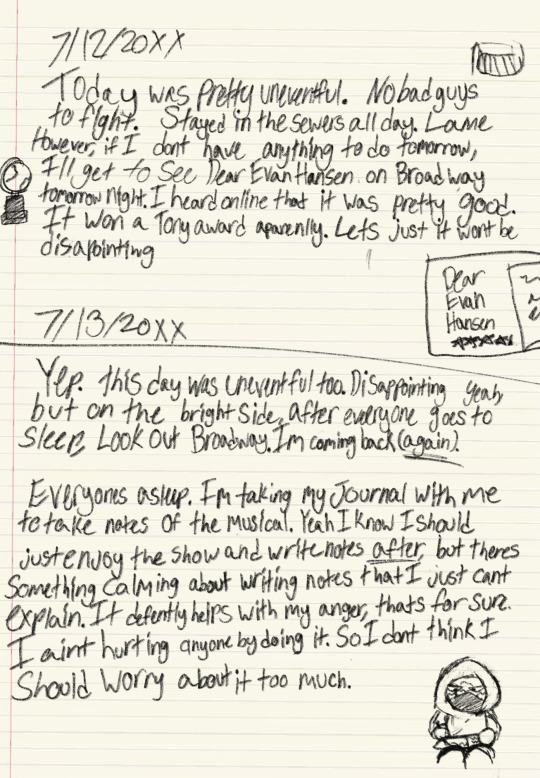 7/12/20XX
Today was pretty uneventful. No bad guys
to fight. Stayed in the sewers all day. Lame
However, if I dont have anything to do tomorrow,
I'll get to see Dear Evan Hansen on Broadway
tomorrow night. I heard online that it was pretty good.
It won a Tony award aparenlly. Lets just it wont be
disapointing
Dear
Evan
Hansen
7/13/20XX
Yep. this day was uneventful too. Disappointing yeah,
but on the bright side, after everyone goes to
sleep, Look out Broadway. Im coming back (again).
Everyones asleep. I'm taking my Journal with me
to take notes of the musical. Yeah I know I should
just enjoy the show and write notes after, but theres
something calming about writing notes that I just cant
explain. It defently helps with my anger, thats for sure.
I aint hurting anyone by doing it. So I dont think I
should worry about it too much.